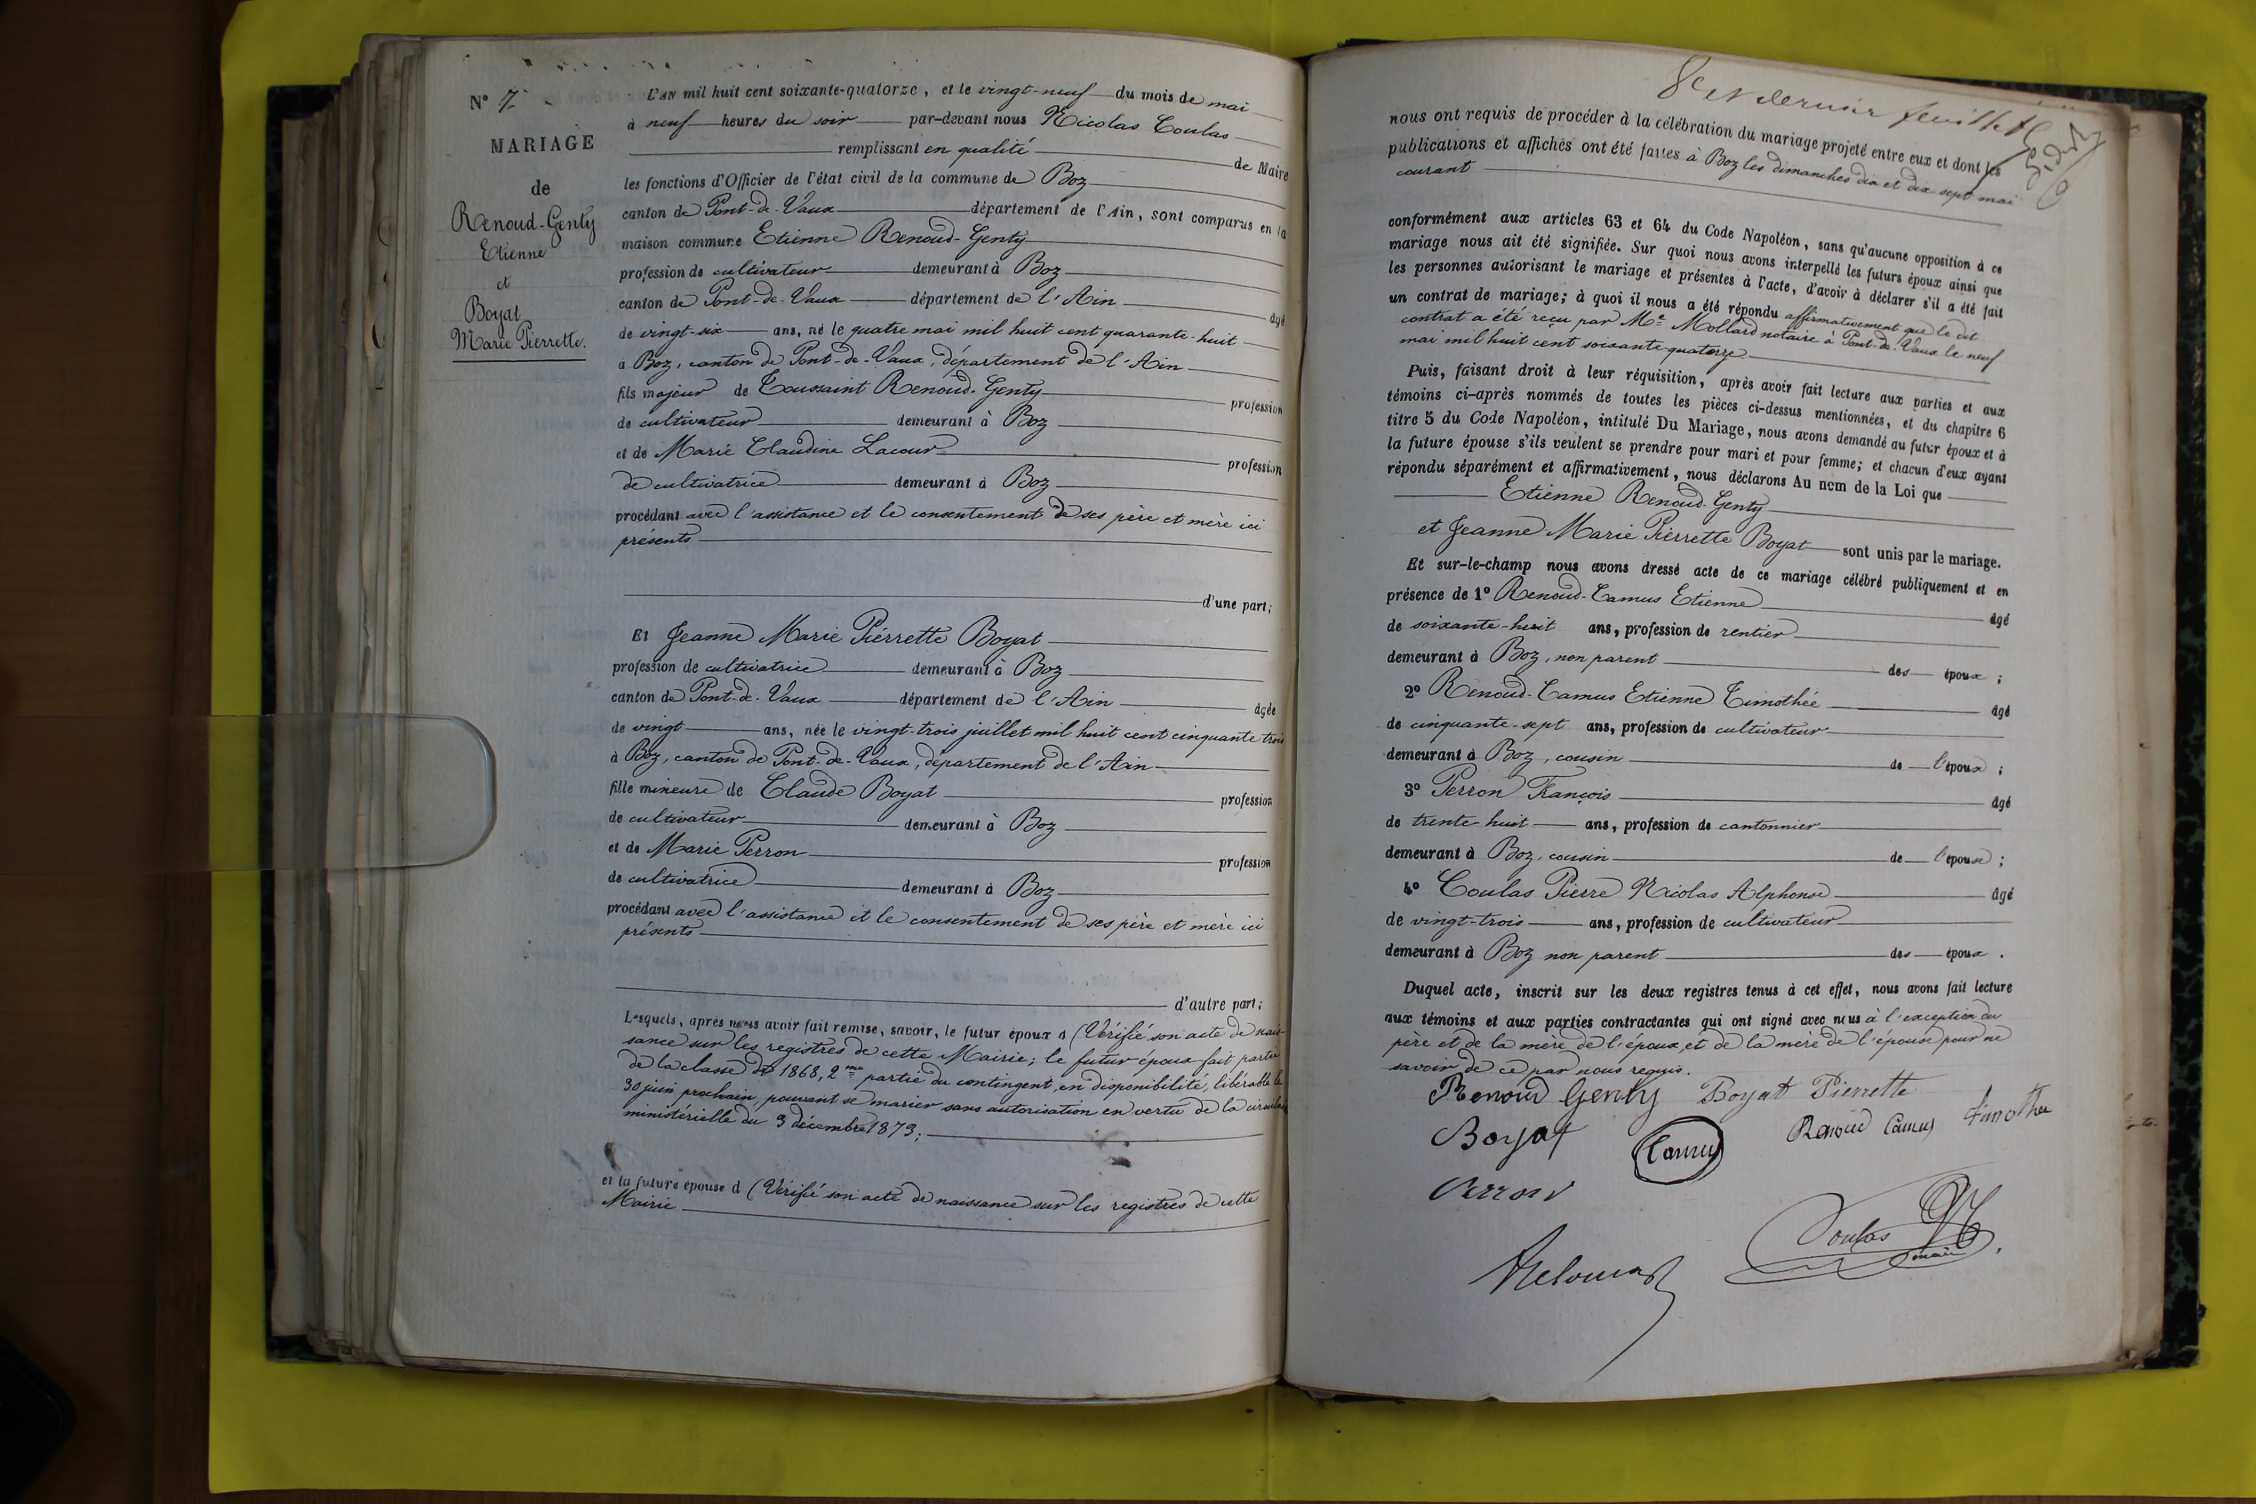 N° 7
MARIAGE
de
Renoud-Genty
Etienne
et
Boyat
Marie Pierrette.
L'AN mil huit cent soixante-quatorze, et le vingt-neuf du mois de mai
à neuf heures du soir par-devant nous Nicolas Coulas
remplissant en qualité de Maire
les fonctions d'Officier de l'état civil de la commune de Boz
canton de Pont-de-Vaux département de l'Ain, sont comparus en la
maison commune Etienne Renoud-Genty
profession de cultivateur demeurant à Boz
canton de Pont-de-Vaux département de l'Ain âgé
de vingt-six ans, né le quatre mai mil huit cent quarante-huit
à Boz, canton de Pont-de-Vaux, département de l'Ain
fils majeur de Toussaint Renoud-Genty profession
de cultivateur demeurant à Boz
et de Marie Claudine Lacour profession
de cultivatrice demeurant à Boz
procédant avec l'assistance et le consentement de ses père et mère ici
présents
d'une part;
Et Jeanne Marie Pierrette Boyat
profession de cultivatrice demeurant à Boz
canton de Pont-de-Vaux département de l'Ain âgée
de vingt ans, née le vingt-trois juillet mil huit cent cinquante trois
à Boz, canton de Pont-de-Vaux, département de l'Ain
fille mineure de Claude Boyat profession
de cultivateur demeurant à Boz
et de Marie Perron profession
de cultivatrice demeurant à Boz
procédant avec l'assistance et le consentement de ses père et mère ici
présents
d'autre part;
Lesquels, après nous avoir fait remise, savoir, le futur époux d (Vérifié son acte de nais-
sance sur les registres de cette Mairie; le futur époux fait partie
de la classe de 1868, 2me partie du contingent, en disponibilité, libérable le
30 juin prochain, pouvant se marier sans autorisation en vertu de la circulaire
ministérielle du 3 décembre 1873;
et la future épouse d (Vérifié son acte de naissance sur les registres de cette
Mairie
8e et dernier feuillet
nous ont requis de procéder à la célébration du mariage projeté entre eux et dont les
publications et affiches ont été faites à Boz les dimanches dix et dix sept mai
courant
conformément aux articles 63 et 64 du Code Napoléon, sans qu'aucune opposition à ce
mariage nous ait été signifiée. Sur quoi nous avons interpellé les futurs époux ainsi que
les personnes autorisant le mariage et présentes à l'acte, d'avoir à déclarer s'il a été fait
un contrat de mariage; à quoi il nous a été répondu affirmativement que le dit
contrat a été reçu par Me Mollard notaire à Pont-de-Vaux le neuf
mai mil huit cent soixante quatorze
Puis, faisant droit à leur réquisition, après avoir fait lecture aux parties et aux
témoins ci-après nommés de toutes les pièces ci-dessus mentionnées, et du chapitre 6
titre 5 du Code Napoléon, intitulé Du Mariage, nous avons demandé au futur époux et à
la future épouse s'ils veulent se prendre pour mari et pour femme; et chacun d'eux ayant
répondu séparément et affirmativement, nous déclarons Au nom de la Loi que
Etienne Renoud-Genty
et Jeanne Marie Pierrette Boyat sont unis par le mariage.
Et sur-le-champ nous avons dressé acte de ce mariage célébré publiquement et en
présence de 1° Renoud-Camus Etienne âgé
de soixante-huit ans, profession de rentier
demeurant à Boz, non parent des époux;
2° Renoud-Camus Etienne Timothée âgé
de cinquante-sept ans, profession de cultivateur
demeurant à Boz, cousin de l'époux;
3° Perron François âgé
de trente-huit ans, profession de cantonnier
demeurant à Boz, cousin de l'épouse;
4° Coulas Pierre Nicolas Alphonse âgé
de vingt-trois ans, profession de cultivateur
demeurant à Boz non parent des époux.
Duquel acte, inscrit sur les deux registres tenus à cet effet, nous avons fait lecture
aux témoins et aux parties contractantes qui ont signé avec nous à l'exception du
père et de la mère de l'époux, et de la mère de l'épouse pour ne
savoir de ce par nous requis.
Renoud Genty Boyat Pierrette
Boyat Camus Renoud Camus Timothee
Perron
Coulas
maire